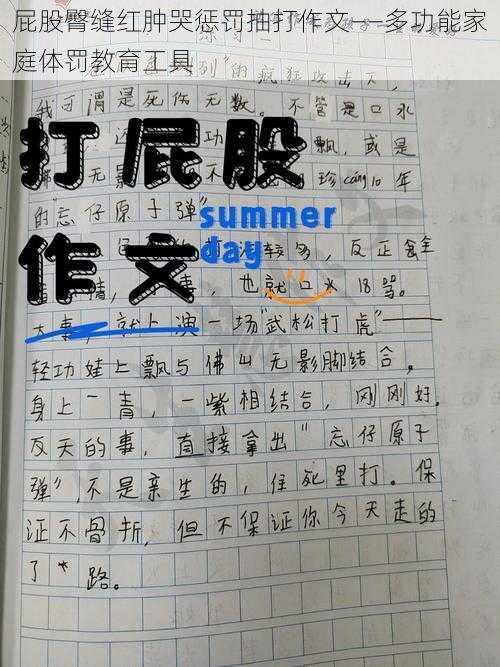 屁股臀缝红肿哭惩罚抽打作文——多功能家
庭体罚教育工具
列"的疯狂攻击下,
我可谓是死伤无数。不管是口水
功
飘,或是
无影
不
珍cáng10年
的"忘仔原子弹"
打屁股
作文
summer
day
较多,反正
事,也就口水18骂。
大事,就上演一场"武松打虎"——
轻功娃上飘与佛山无影脚结合,
身上一青,一紫相结合,刚刚好。
反天的事,直接拿出"忘仔原子
弹",不是亲生的,往死里打。保
证不骨折,但不保证你今天走的
了*路。